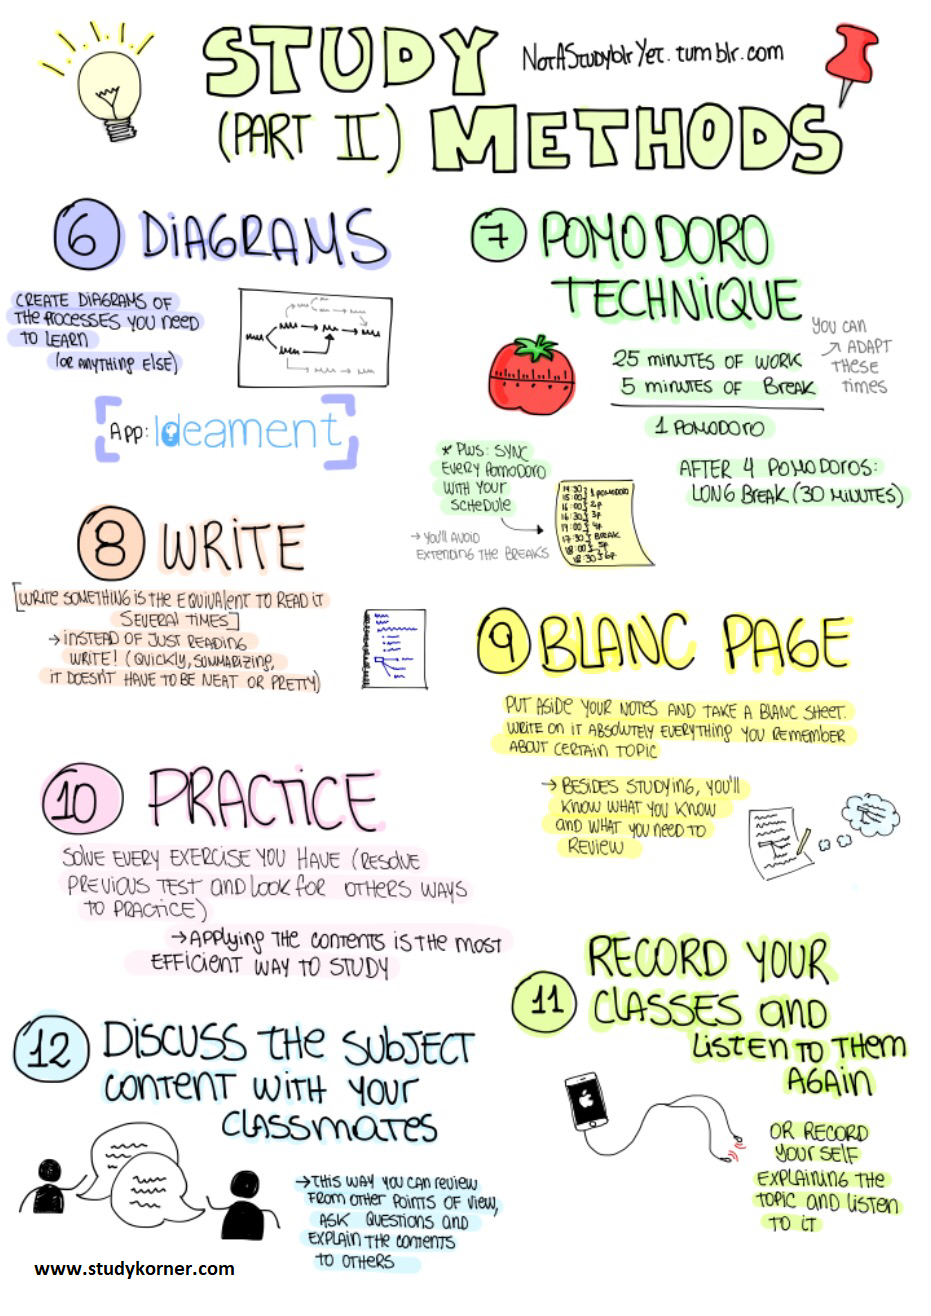 STUDY
NotAStudyblrYet.tumblr.com
(PART II) METHODS
6 DIAGRAMS
CREATE DIAGRAMS OF
THE PROCESSES YOU NEED
TO LEARN
(OR ANYTHING ELSE)
App: Ideament
7 POMODORO
TECHNIQUE
25 MINUTES OF WORK
5 MINUTES OF BREAK
1 POMODORO
YOU CAN
→ ADAPT
THESE
times
AFTER 4 POMODOROS:
LONG BREAK (30 MINUTES)
* PLUS: SYNC
EVERY POMODORO
WITH YOUR
SCHEDULE
→ YOU'LL AVOID
EXTENDING THE BREAKS
14:30
15:00 } 1 POMODORO
16:00 } 2P
16:30 } 3P
17:00 } 4P
17:30 } BREAK
18:00 } 5P
18:30 } 6P
8 WRITE
[WRITE SOMETHING IS THE EQUIVALENT TO READ IT
SEVERAL TIMES]
→ INSTEAD OF JUST READING
WRITE! (QUICKLY, SUMMARIZING,
IT DOESN'T HAVE TO BE NEAT OR PRETTY)
9 BLANC PAGE
PUT ASIDE YOUR NOTES AND TAKE A BLANC SHEET.
WRITE ON IT ABSOLUTELY EVERYTHING YOU REMEMBER
ABOUT CERTAIN TOPIC
→ BESIDES STUDYING, YOU'LL
KNOW WHAT YOU KNOW
AND WHAT YOU NEED TO
REVIEW
10 PRACTICE
SOLVE EVERY EXERCISE YOU HAVE (RESOLVE
PREVIOUS TEST AND LOOK FOR OTHERS WAYS
TO PRACTICE)
→ APPLYING THE CONTENTS IS THE MOST
EFFICIENT WAY TO STUDY
11 RECORD YOUR
CLASSES AND
LISTEN TO THEM
AGAIN
OR RECORD
YOURSELF
EXPLAINING THE
TOPIC AND LISTEN
TO IT
12 DISCUSS THE SUBJECT
CONTENT WITH YOUR
CLASSMATES
→ THIS WAY YOU CAN REVIEW
FROM OTHER POINTS OF VIEW,
ASK QUESTIONS AND
EXPLAIN THE CONTENTS
TO OTHERS
www.studykorner.com